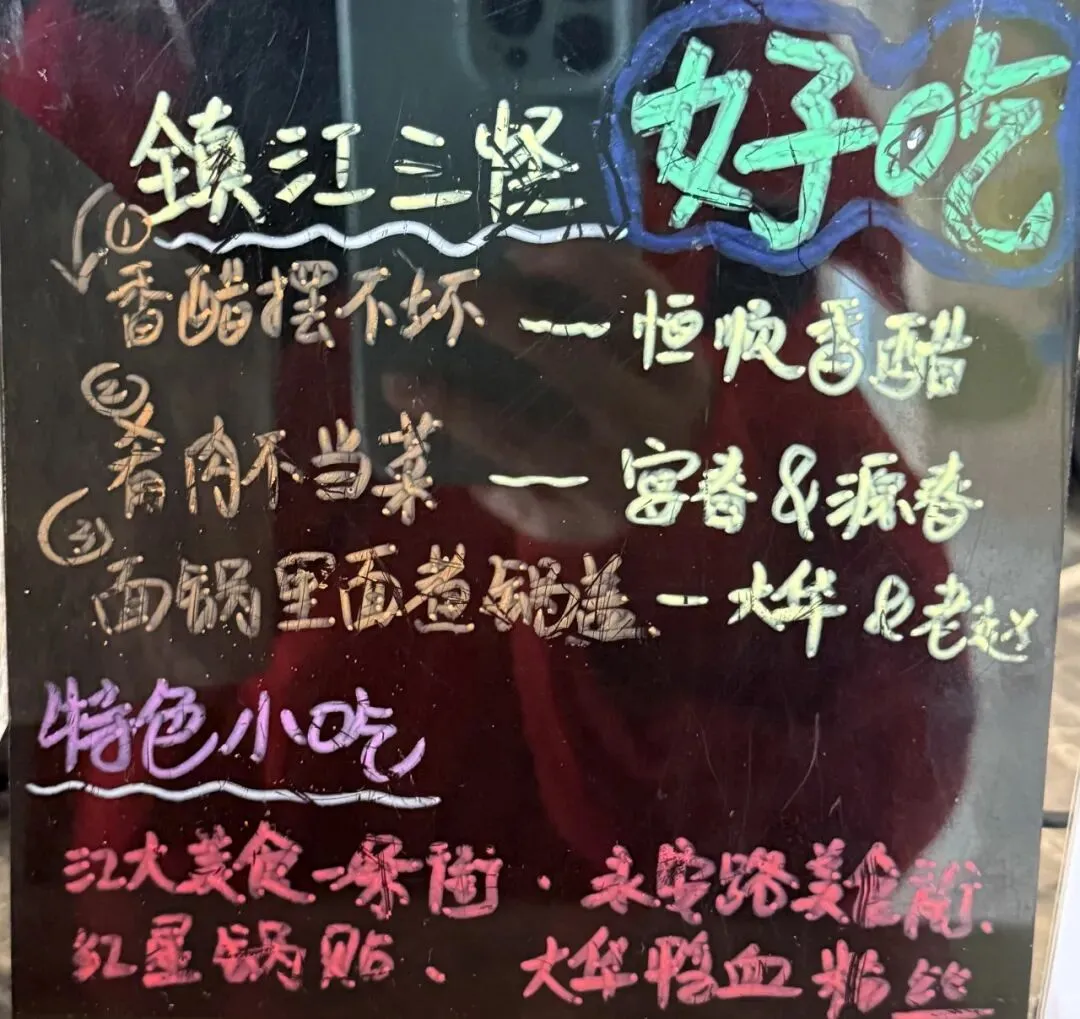 鎮江三怪 好吃
① 香醋摆不坏 — 恒顺香醋
② 肴肉不当菜 — 宴春 & 源春
③ 面锅里面煮锅盖 — 大华 & 老赵
特色小吃
江大美食一条街 · 永安路美食街、
红星锅贴、 大华鸭血粉丝